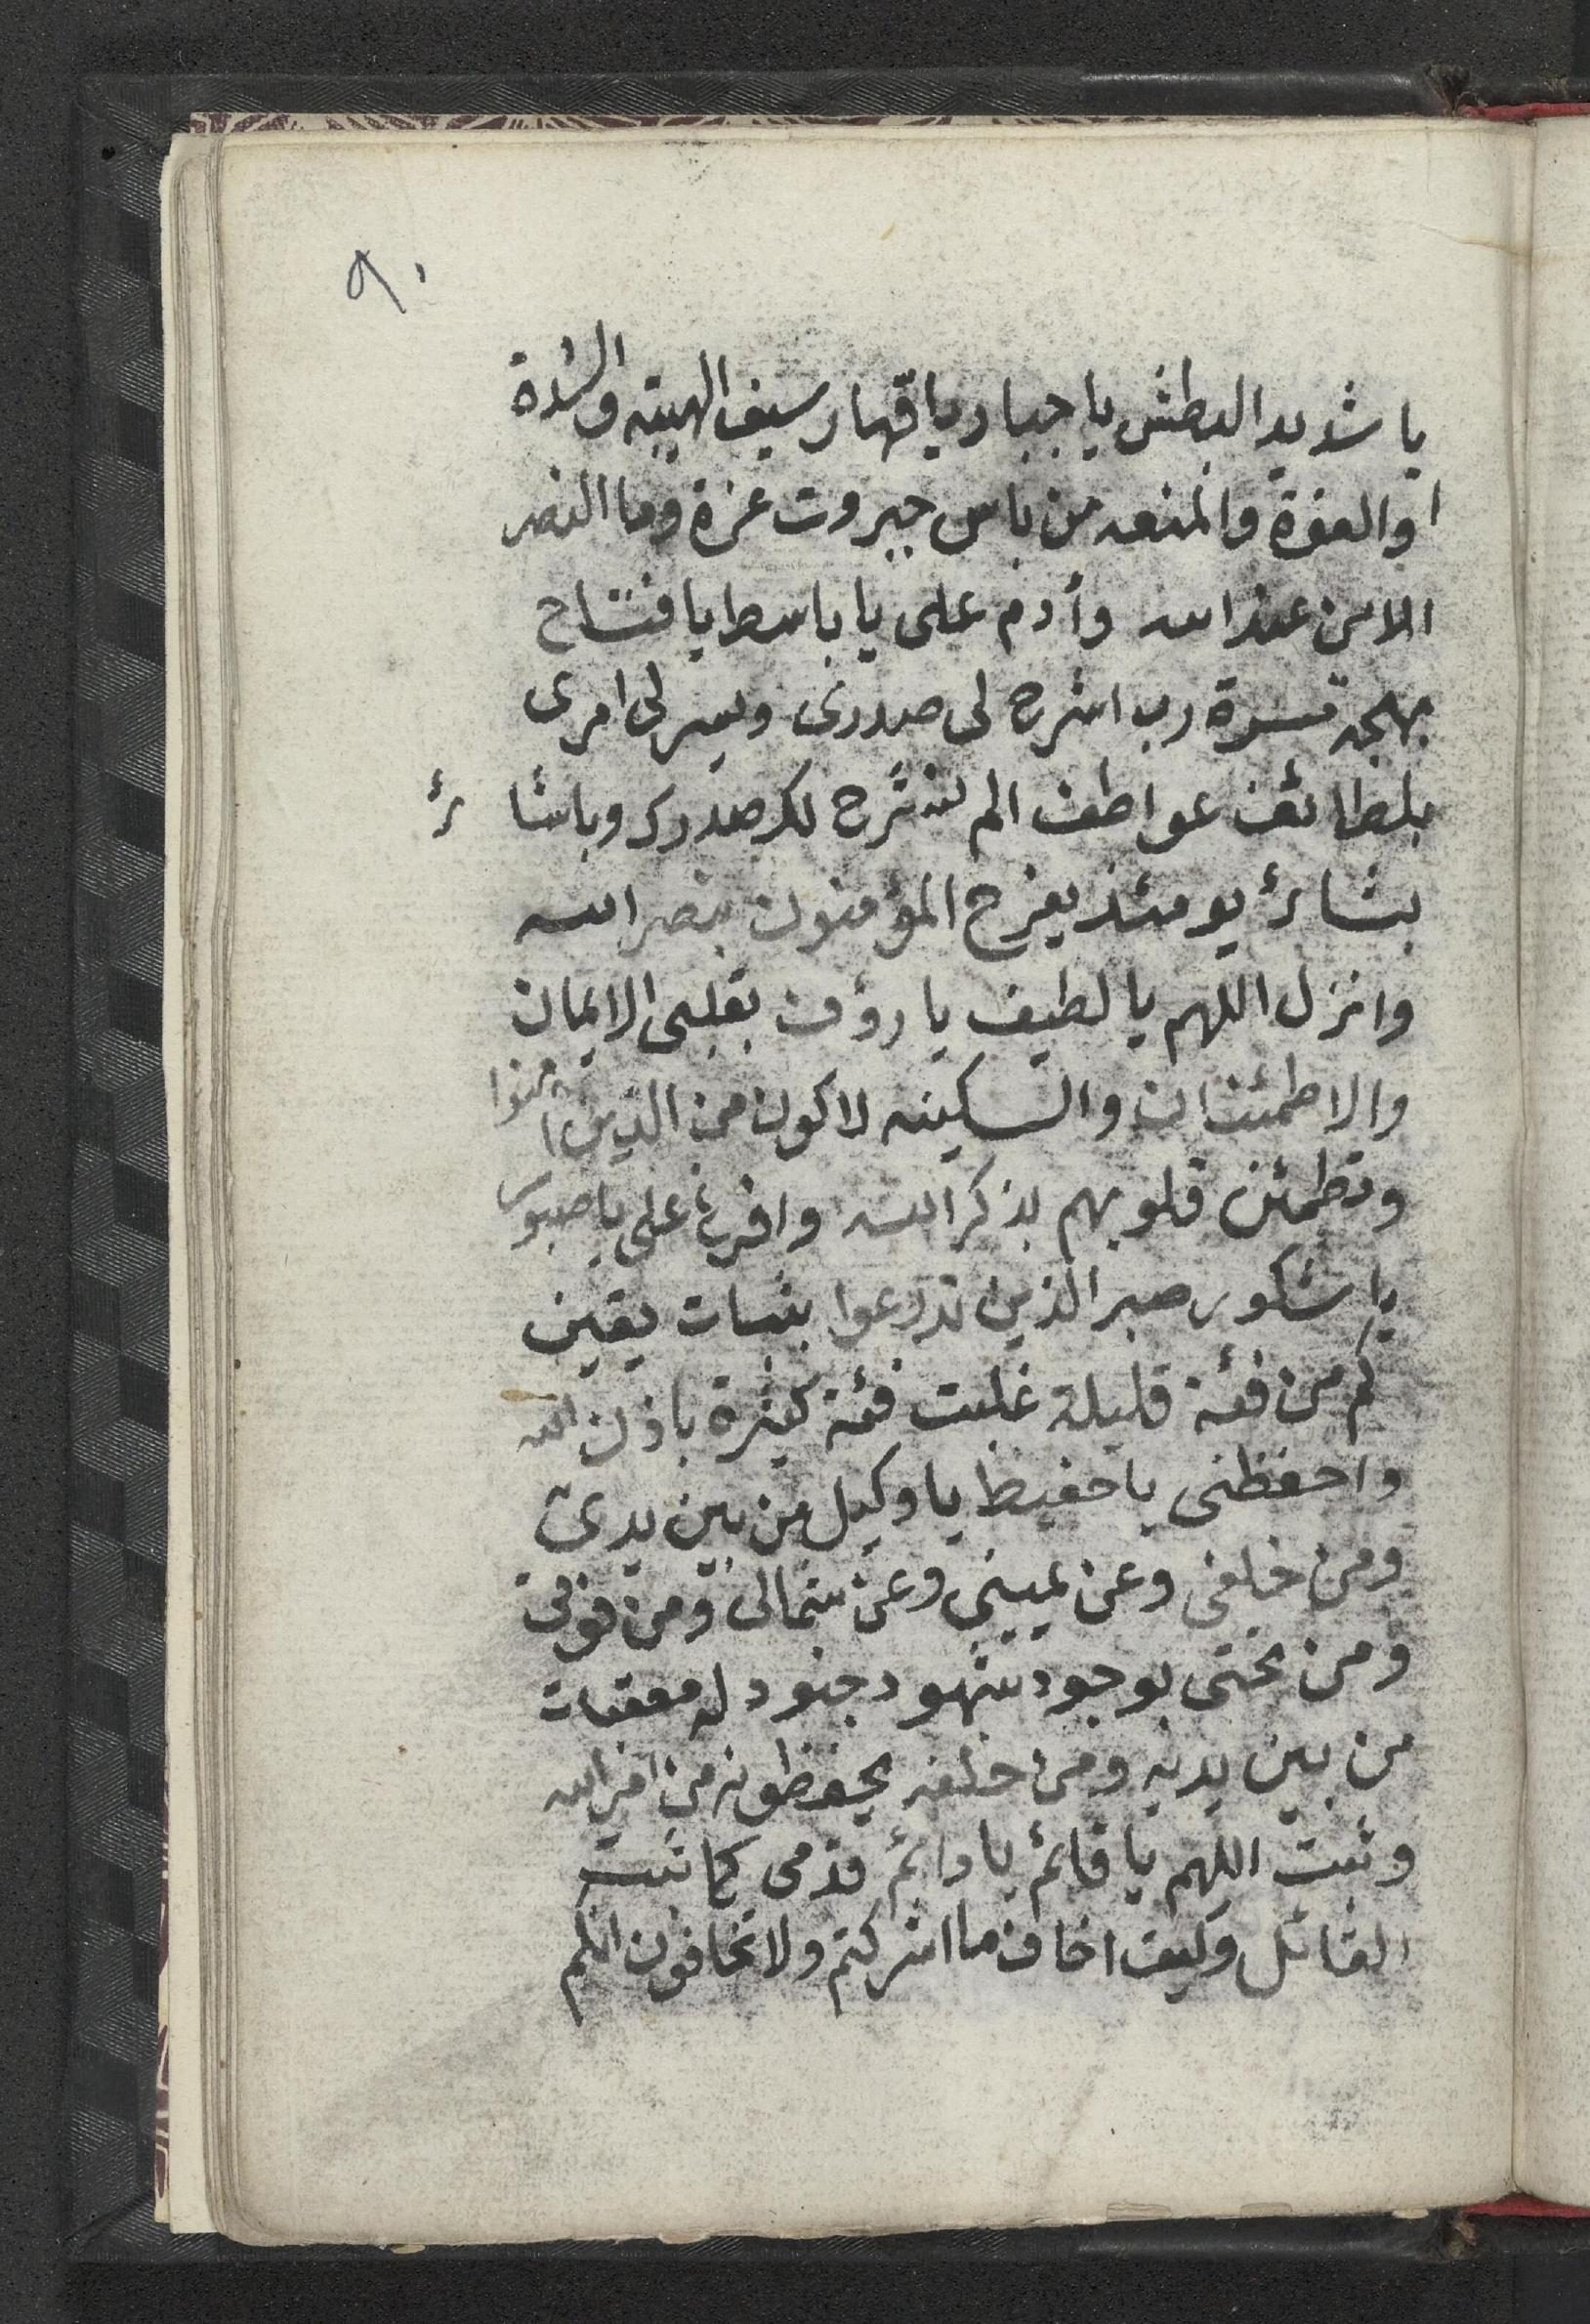 ٩٠
يا شديد البطش يا جبار يا قهار سيف الهيبة والشدة
والقوة والمنعه من باس جبروت عزة وما النصر
الا من عند الله وأدم على يا باسط يا فتاح
بهجة مسرة رب اشرح لى صدرى ويسر لى امرى
بلطائف عواطف الم نشرح لك صدرك وباشائر
بشائر يومئذ يفرح المؤمنون بنصر الله
وانزل اللهم يا لطيف يا رؤف بقلبى الايمان
والاطمئنان والسكينه لاكون من الذين امنوا
وتطمئن قلوبهم بذكر الله وافرغ على يا صبور
يا شكور صبر الذين تدرعوا بثبات يقين
كم من فئة قليلة غلبت فئة كثيرة باذن الله
واحفظنى يا حفيظ يا وكيل من بين يدى
ومن خلفى وعن يمينى وعن شمالى ومن فوقى
ومن تحتى بوجود شهود جنود له معقبات
من بين يديه ومن خلفه يحفظونه من امر الله
وثبت اللهم يا قائم يا دائم قدمى كما ثبت
القائل وكيف اخاف ما اشركتم ولا تخافون انكم